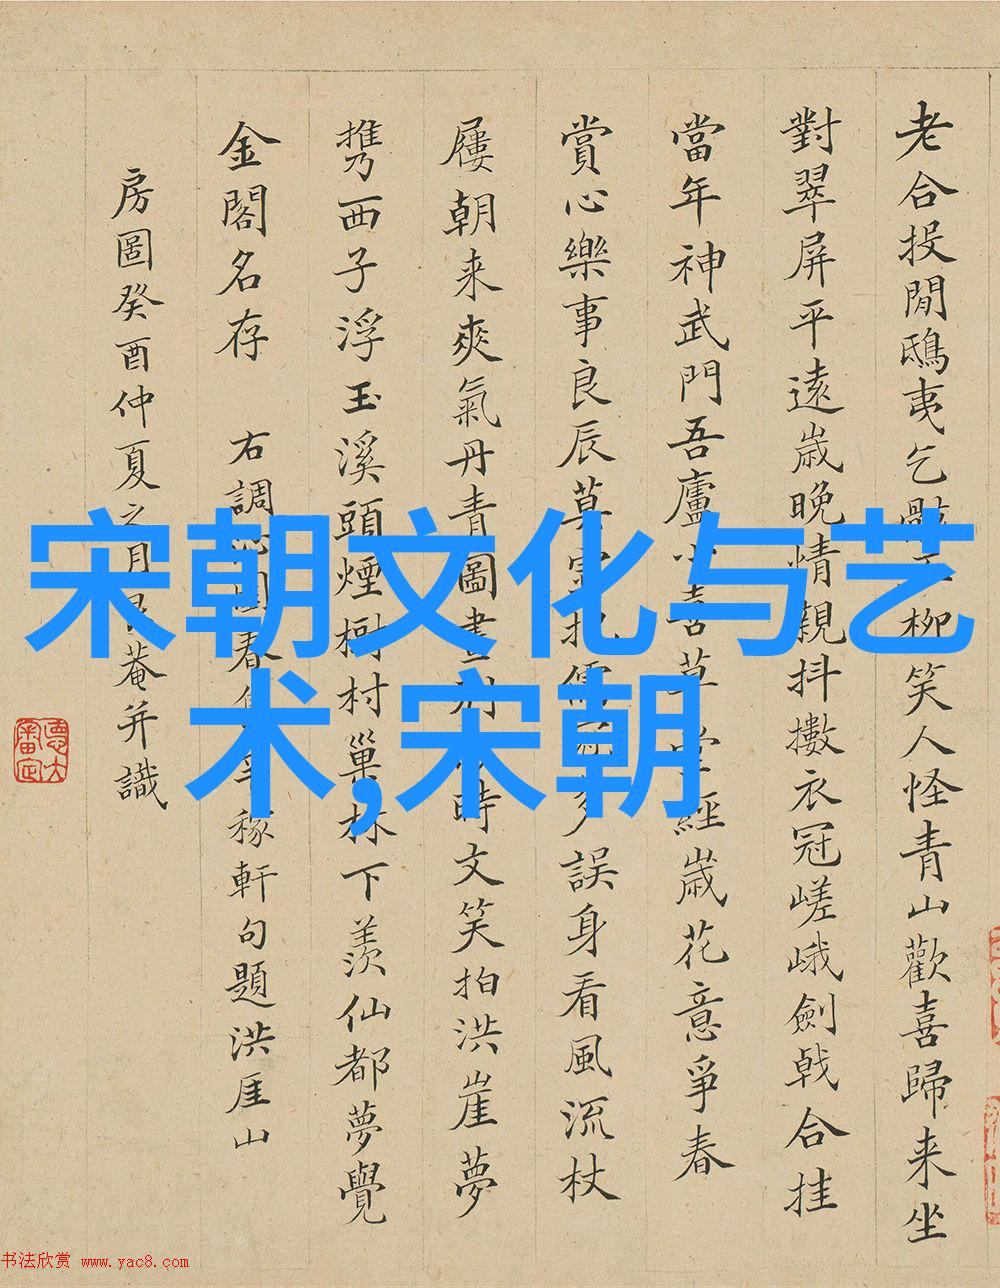 老合投閒鴟夷乞柳笑人怪青山歡喜歸来坐
對翠屏平遠歲晚情親抖擻衣冠嵯峨劍戟合挂
當年神武門吾廬小喜草堂經歲花意爭春
賞心樂事良辰莫誤身看風流杖
屨朝来爽氣丹青圖畫時文笑拍洪崖夢
携西子浮玉溪頭煙樹村巢林下羨仙都夢覺
金閣名存 右調沁園春稼軒句題洪厓山
房圖癸酉仲夏之月菴并識
宋朝文化与艺
术,宋朝
书法欣赏 www.yac8.com